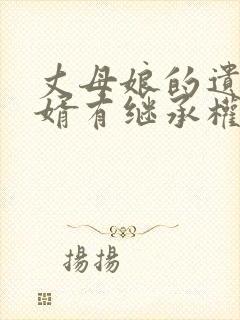 丈母娘的遗
婿有继承權
揚揚